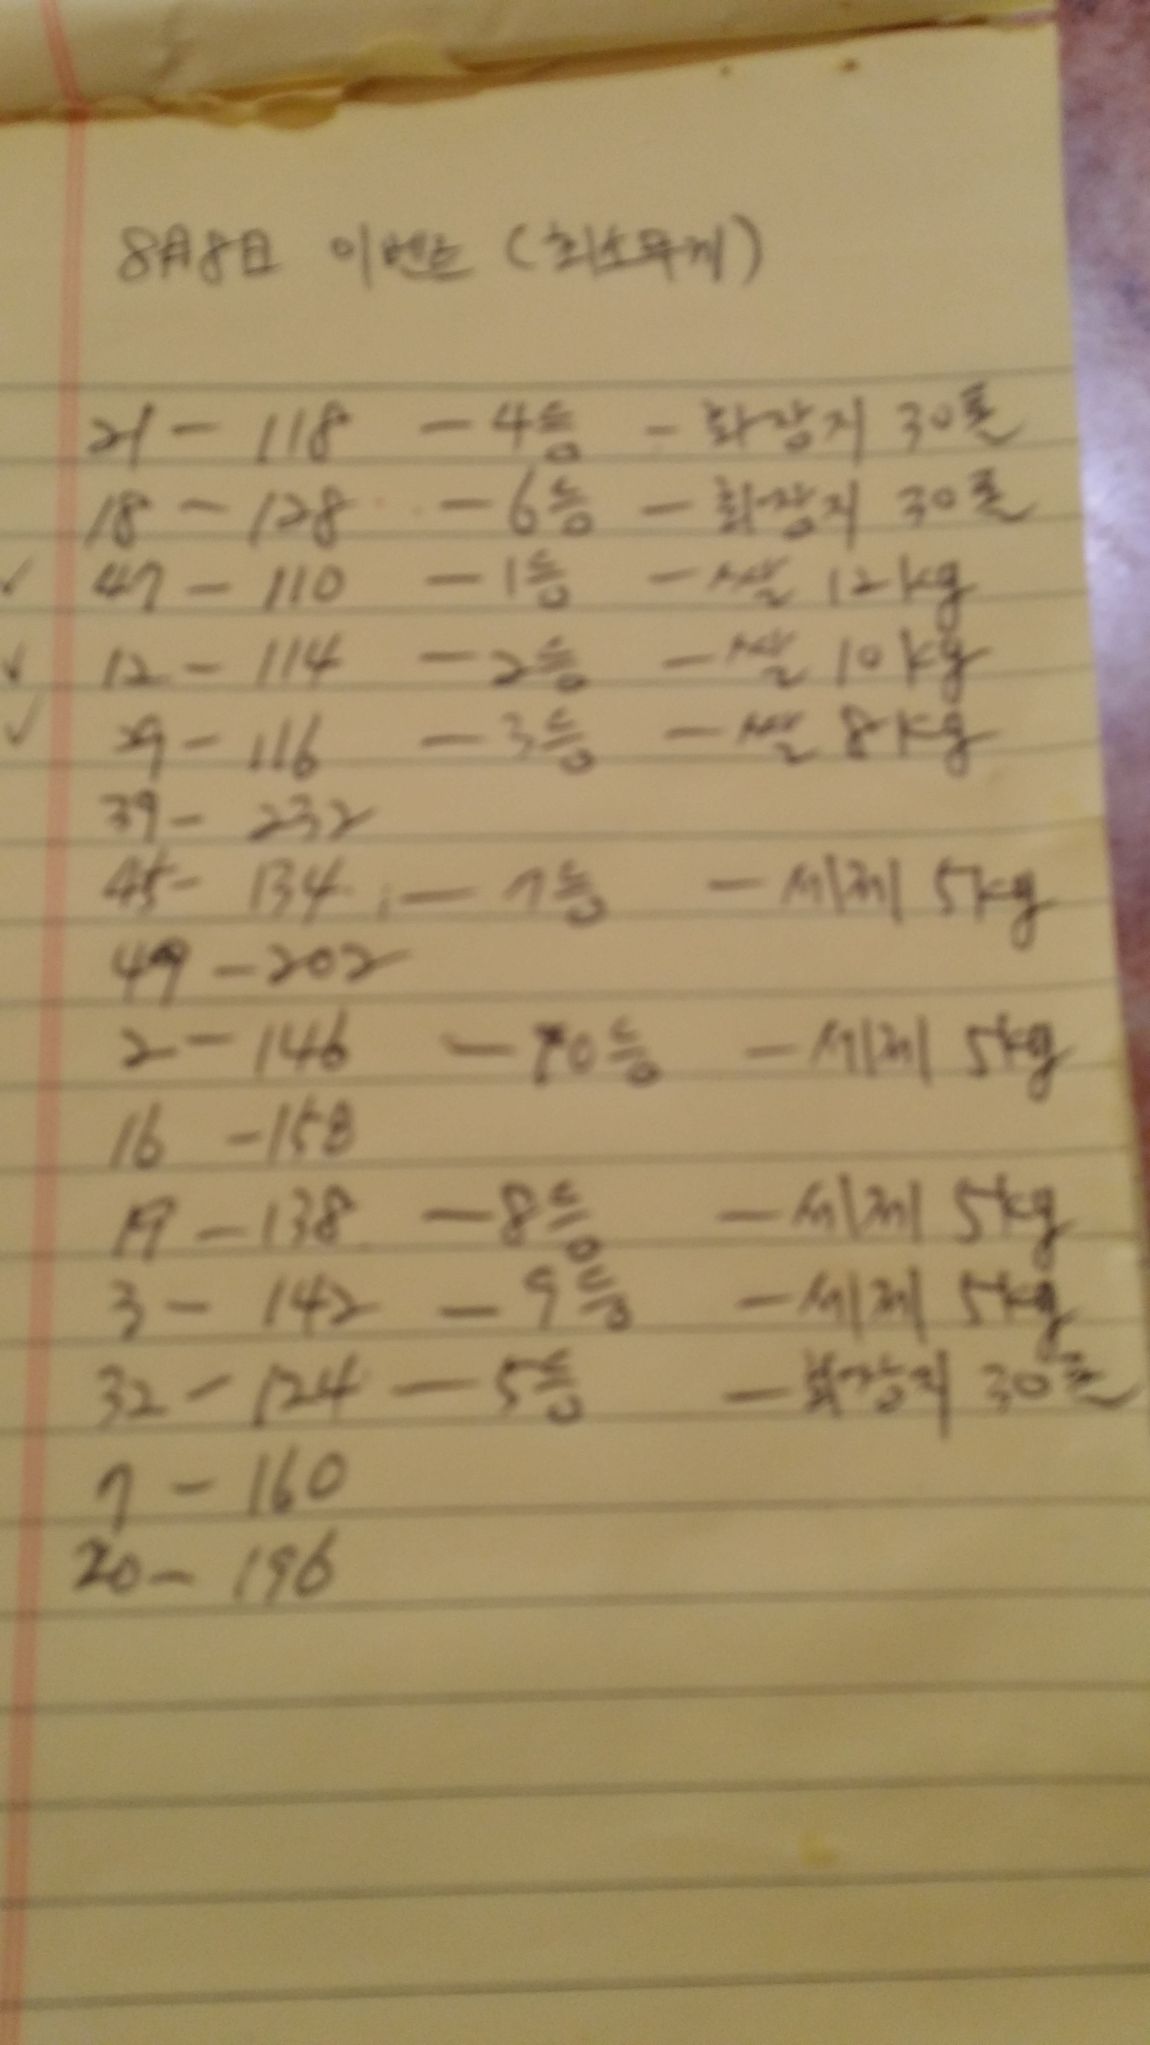 8月8日 이벤트 (최소무게)
21 - 118 - 4등 - 화장지 30롤
18 - 128 - 6등 - 화장지 30롤
✓ 47 - 110 - 1등 - 쌀 12kg
✓ 12 - 114 - 2등 - 쌀 10kg
✓ 29 - 116 - 3등 - 쌀 8kg
39 - 232
45 - 134 - 7등 - 세제 5kg
49 - 202
2 - 146 - 10등 - 세제 5kg
16 - 158
19 - 138 - 8등 - 세제 5kg
3 - 142 - 9등 - 세제 5kg
32 - 124 - 5등 - 화장지 30롤
7 - 160
20 - 196